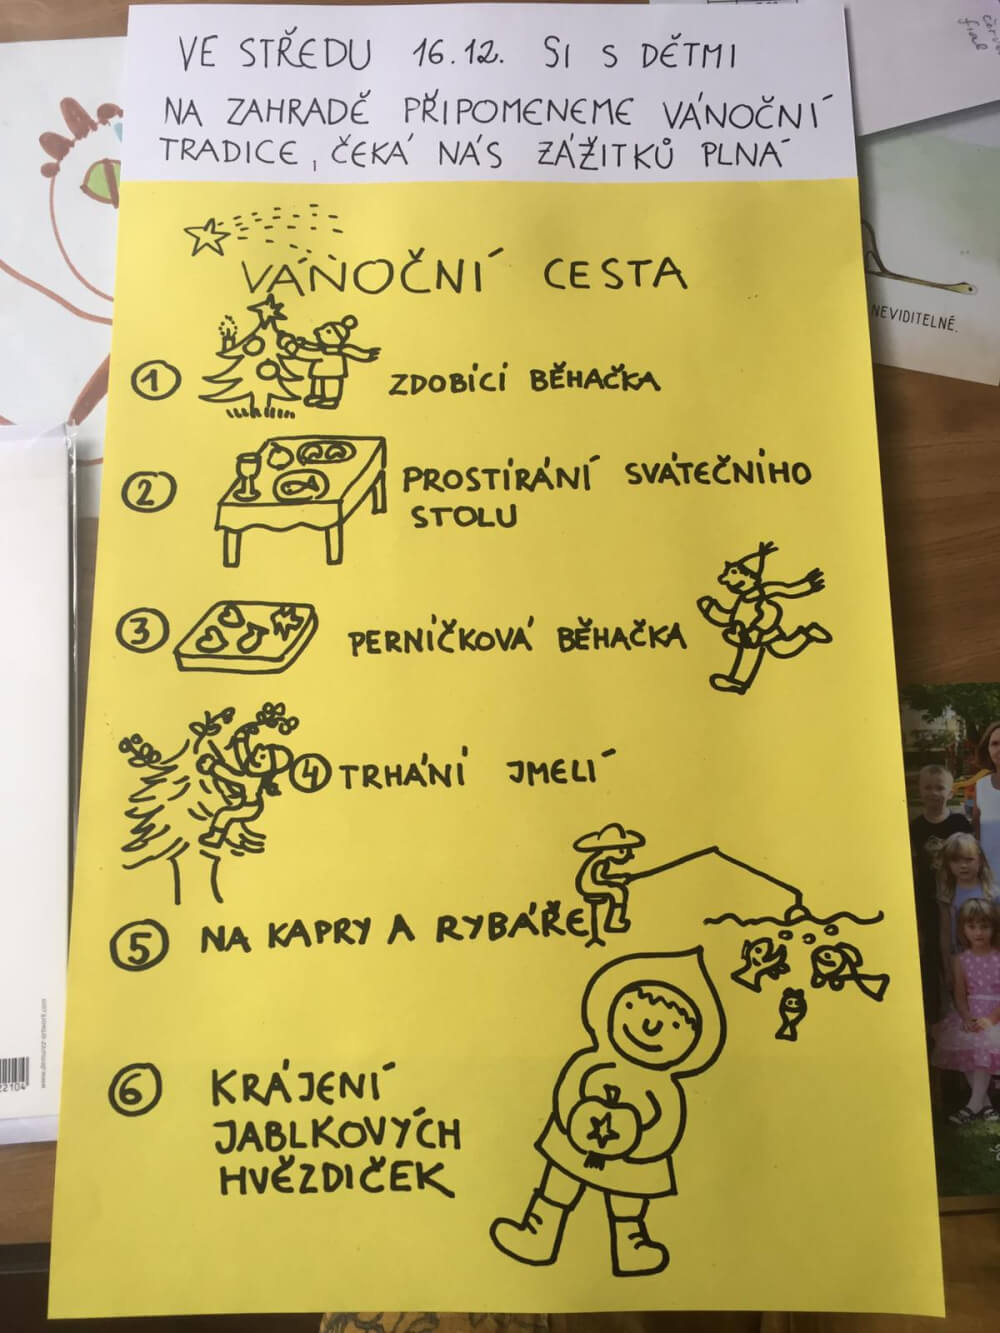 VE STŘEDU 16.12. SI S DĚTMI
NA ZAHRADĚ PŘIPOMENEME VÁNOČNÍ
TRADICE, ČEKÁ NÁS ZÁŽITKŮ PLNÁ
VÁNOČNÍ CESTA
1 ZDOBÍCÍ BĚHAČKA
2 PROSTÍRÁNÍ SVÁTEČNÍHO
STOLU
3 PERNÍČKOVÁ BĚHAČKA
4 TRHÁNÍ JMELÍ
5 NA KAPRY A RYBÁŘE
6 KRÁJENÍ
JABLKOVÝCH
HVĚZDIČEK
NEVIDITELNÉ.